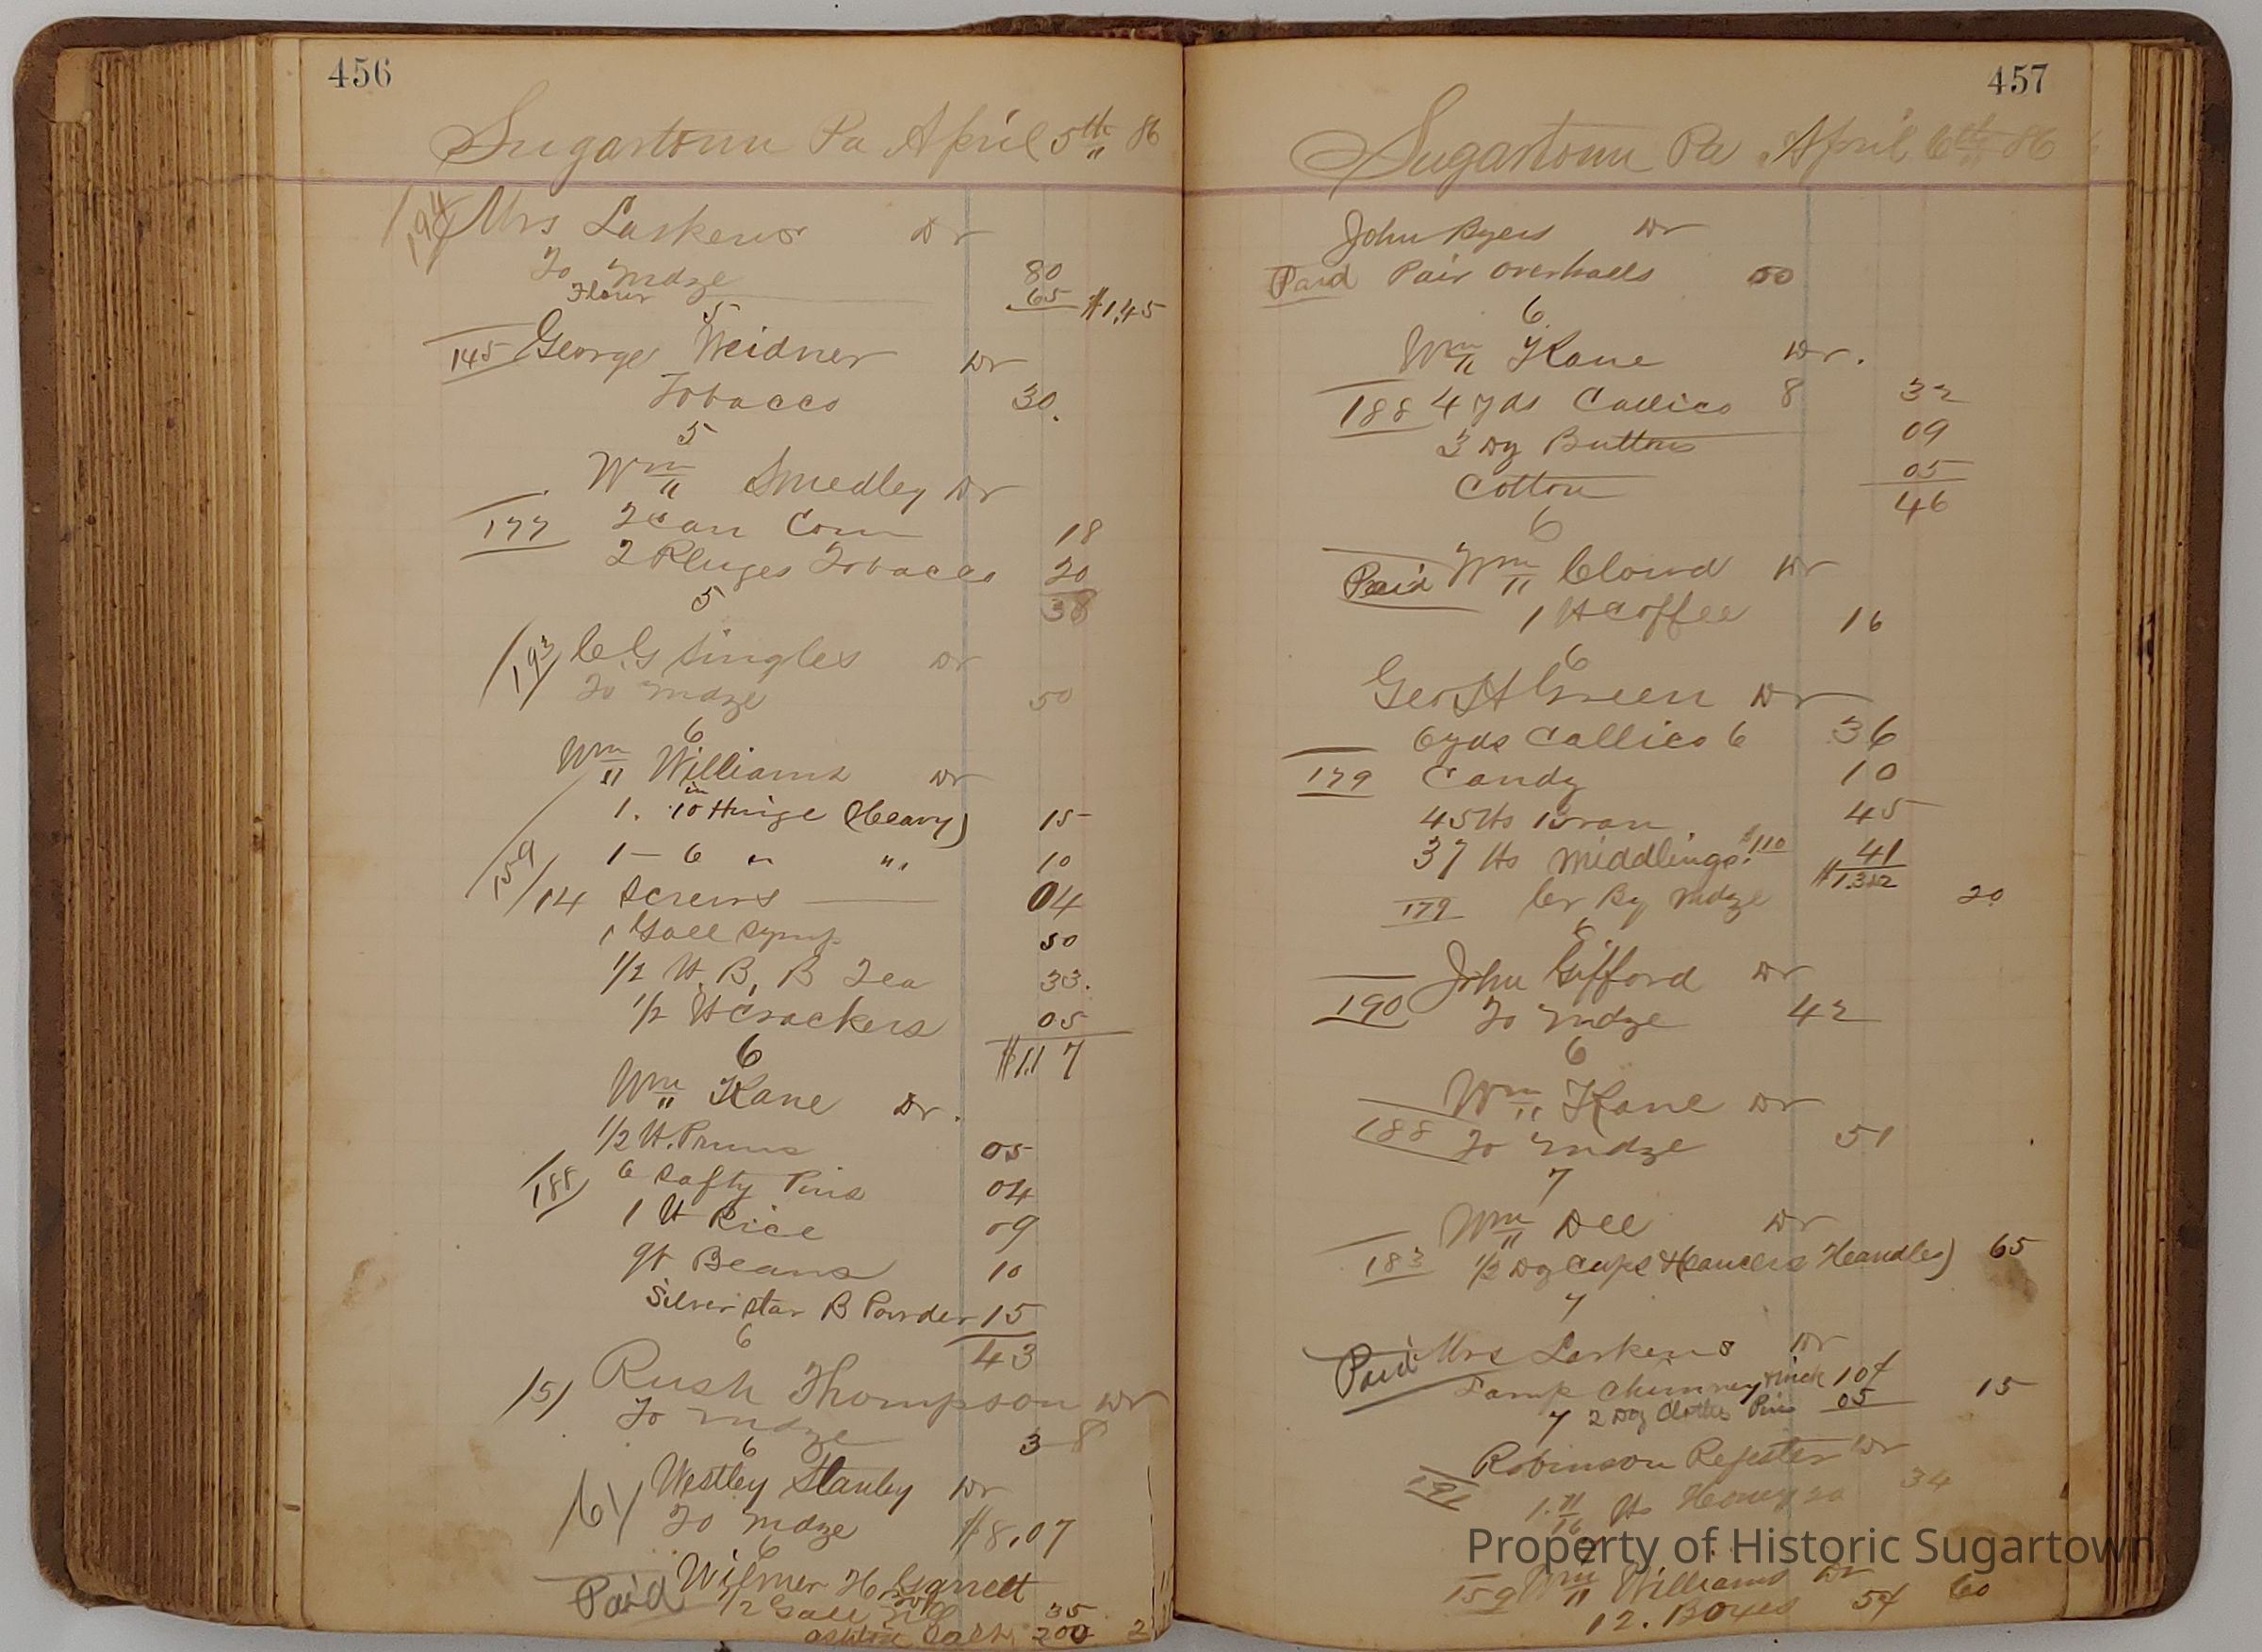 456
Sugartown Pa April 5th 86
194 Mrs Larkens Dr
To Mdze 80
Flour 65 $1.45
5
145 George Weidner Dr
Tobacco 30.
5
Wm Smedley Dr
177 2 Can Corn 18
2 Pluges Tobacco 20
5 38
193 Singles Dr
To Mdze 50
6
Wm Williams Dr
1. 10 in Hinge (Heavy) 15
1 - 6 " " 10
159 14 Screws 04
1 Gall Syrup 50
1/2 lb B, B Tea 33.
1/2 lb Crackers 05
6 $1.17
Wm Kane Dr.
1/2 lb. Pruns 05
188 6 Safty Pins 04
1 lb Rice 09
qt Beans 10
Silver Star B Powder 15
6 43
151 Rush Thompson Dr
To Mdze 38
6
61 Westley Stanley Dr
To Mdze $8.07
6
Paid Wilmer H. Garrett
1/2 Gall 35
Cash 200 2
457
Sugartown Pa April 6th 86
John Byers Dr
Paid Pair Overhalls 50
6
Wm Kane Dr.
188 4 yds Callico 8 32
3 Dz Buttons 09
Cotton 05
46
6
Paid Wm Cloud Dr
1 lb Coffee 16
6
Geo H Green Dr
6 yds Callico 6 36
179 Candy 10
45 lbs Bran 45
37 lbs Middlings $1.10 41
$1.32
179 Cr By Mdze 20
6
John Gifford Dr
190 To Mdze 42
6
Wm Kane Dr
188 To Mdze 51
7
Wm Dee Dr
183 1/2 Dz Cups & Saucers Handles) 65
7
Paid Mrs Larkens Dr
Lamp Chimney & wick 10¢ 15
7 2 Doz Clothes Pins 05
Robinson Dr
191 1. 11/16 lbs Honey 20 34
Property of Historic Sugartown
159 Wm Williams Dr
12. Boxes 5¢ 60